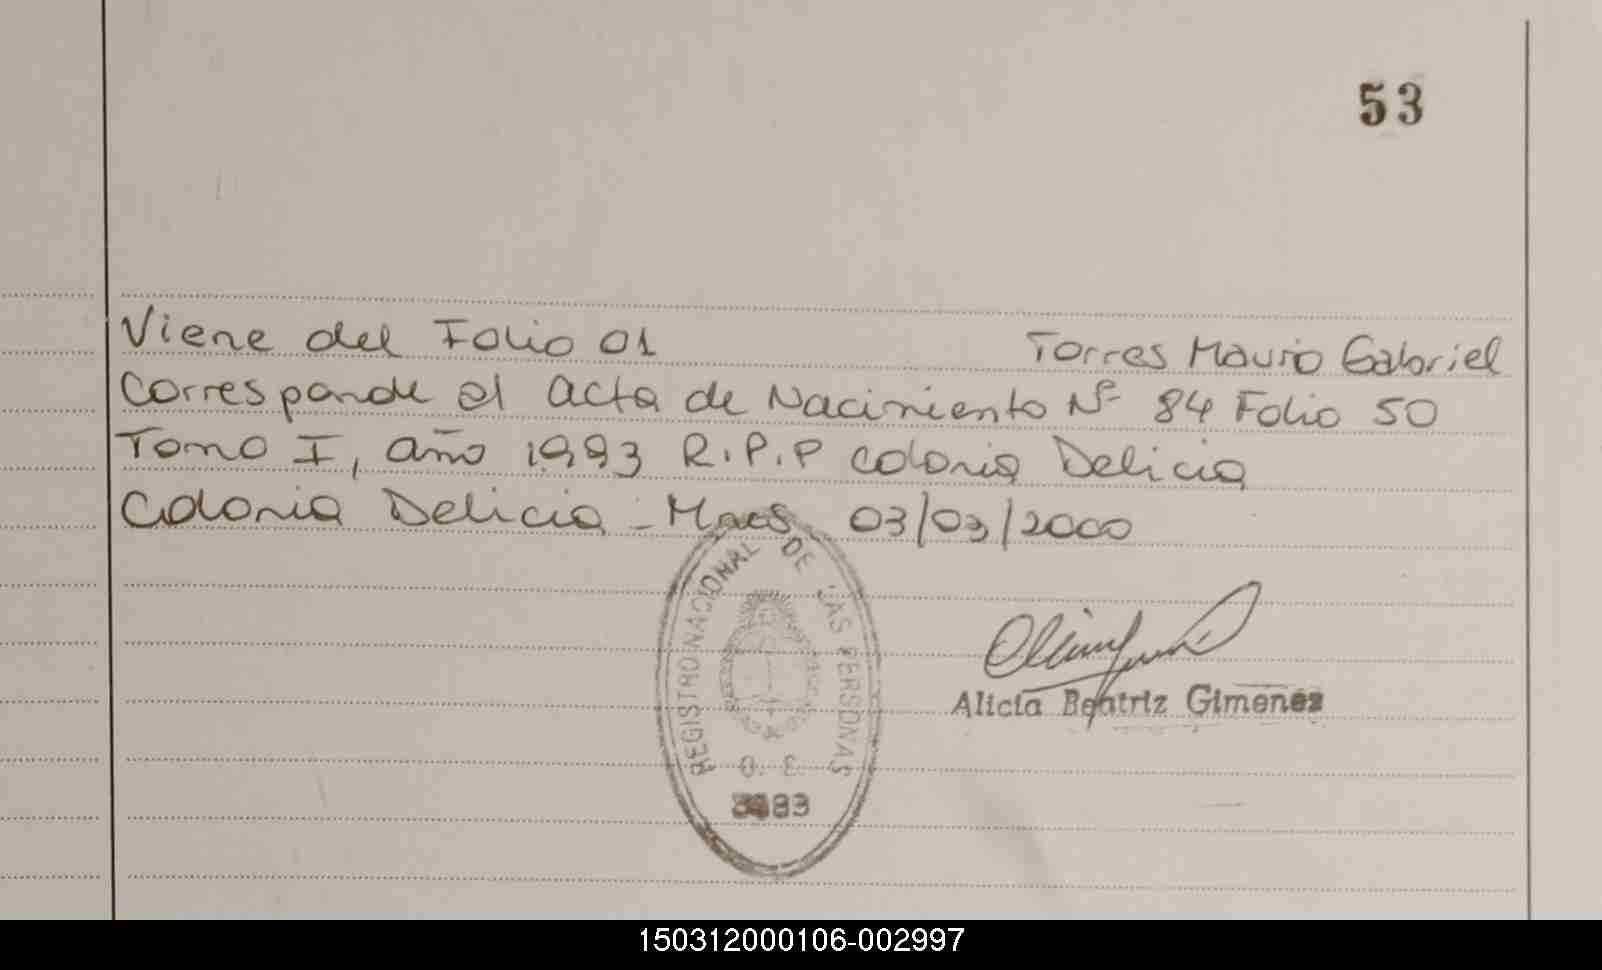 53
Viene del Folio 01 Torres Mauro Gabriel
Corresponde al acta de Nacimiento Nº 84 Folio 50
Tomo I, año 1993 R.P.P Colonia Delicia
Colonia Delicia - Mnes 03/03/2000
REGISTRO NACIONAL DE LAS PERSONAS
O. E.
Alicia Beatriz Gimenez
150312000106-002997